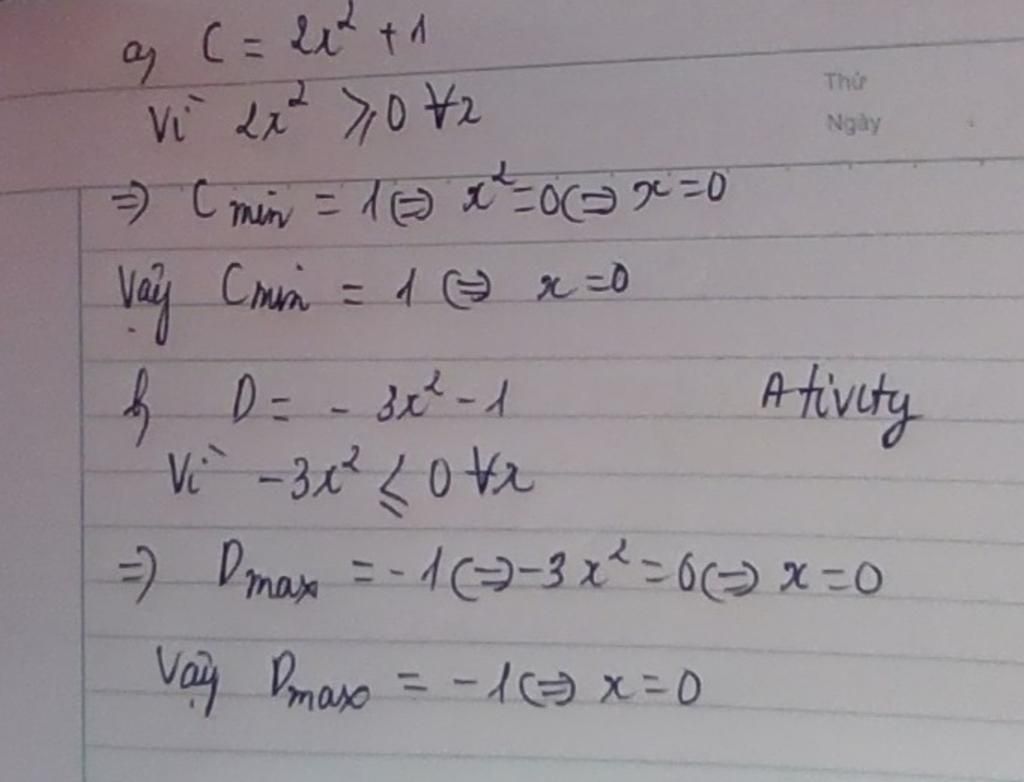 a, C = 2x² + 1
Thứ
Vì 2x² ⩾ 0 ∀x
Ngày
⇒ C min = 1 ⇔ x² = 0 ⇔ x = 0
Vậy Cmin = 1 ⇔ x = 0
b, D = - 3x² - 1
Ativity
Vì -3x² ⩽ 0 ∀x
⇒ Dmax = -1 ⇔ -3x² = 0 ⇔ x = 0
Vậy Dmax = -1 ⇔ x = 0